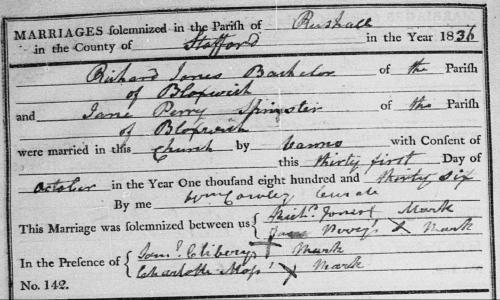 MARRIAGES solemnized in the Parish of Rushall
in the County of Stafford in the Year 1836
Richard Jones Bachelor of the Parish
of Bloxwich
and Jane Perry Spinster of the Parish
of Bloxwich
were married in this Church by Banns with Consent of
this thirty first Day of
October in the Year One thousand eight hundred and thirty six
By me Wm Cowley Curate
This Marriage was solemnized between us { Richd. Jones X Mark
Jane Perrys X Mark
In the Presence of { Saml. X Mark
Charlotte X Mark
No. 142.